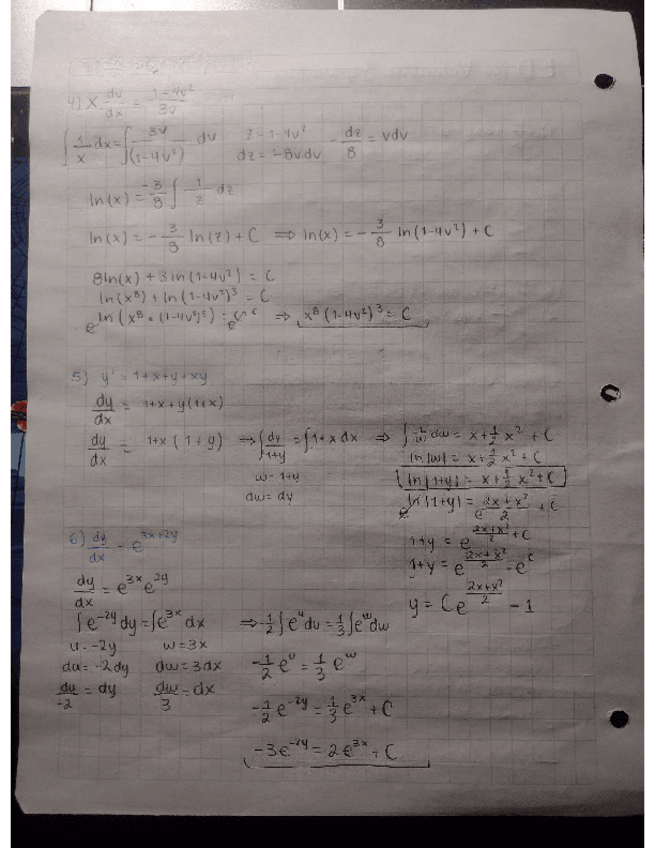 4) x dv/dx = 1-4v²/3v
∫ 1/x dx = ∫ 3v/(1-4v²) dv   z = 1-4v²   dz = -8vdv   - dz/8 = vdv
ln(x) = -3/8 ∫ 1/z dz
ln(x) = - 3/8 ln(z) + C ⟹ ln(x) = - 3/8 ln(1-4v²) + C
8ln(x) + 3ln(1-4v²) = C
ln(x⁸) + ln(1-4v²)³ = C
⟹ x⁸(1-4v²)³ = C
5) y' = 1+x+y+xy
dy/dx = 1+x+y(1+x)
dy/dx = 1+x(1+y) ⟹ ∫ dy/1+y = ∫1+x dx ⟹ dw = x + 1/2 x² + C
w = 1+y   ln|w| = x + 1/2 x² + C
dw = dy   ln|1+y| = x + 1/2 x² + C
e^ln|1+y| = e^(2x+x²/2) + C
1+y = e^(2x+x²/2 + C)
1+y = e^(2x+x²/2) · e^C
y = Ce^(2x+x²/2) - 1
6) dy/dx = e^(3x+2y)
dy/dx = e^3x e^2y
∫e^-2y dy = ∫e^3x dx ⟹ -1/2 ∫e^u du = 1/3 ∫e^w dw
u = -2y   w = 3x
du = -2dy   dw = 3dx   -1/2 e^u = 1/3 e^w
du/-2 = dy   dw/3 = dx
-1/2 e^-2y = 1/3 e^3x + C
-3e^-2y = 2e^3x + C